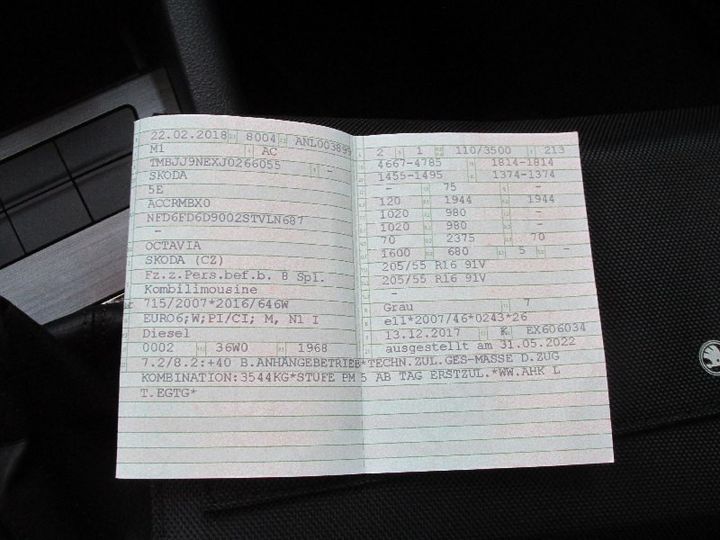 22.02.2018 8004 ANL003895
M1 AC
TMBJJ9NEXJ0266055 -
SKODA
5E
ACCRMBX0
NFD6FD6D9002STVLN687
-
OCTAVIA
SKODA (CZ)
Fz.z.Pers.bef.b. 8 Spl.
Kombilimousine
715/2007*2016/646W
EURO6;W;PI/CI; M, N1 I
Diesel
0002 36W0 1968
2 1 110/3500 213
4667-4785 1814-1814
1455-1495 1374-1374
- 75 -
120 1944 1944
1020 980 -
1020 980 -
70 2375 70
1600 680 5 -
205/55 R16 91V
205/55 R16 91V
-
Grau 7
e11*2007/46*0243*26
13.12.2017 K EX606034
ausgestellt am 31.05.2022
7.2/8.2:+40 B.ANHÄNGEBETRIEB*TECHN.ZUL.GES-MASSE D.ZUG
KOMBINATION:3544KG*STUFE PM 5 AB TAG ERSTZUL.*WW.AHK L
T.EGTG*